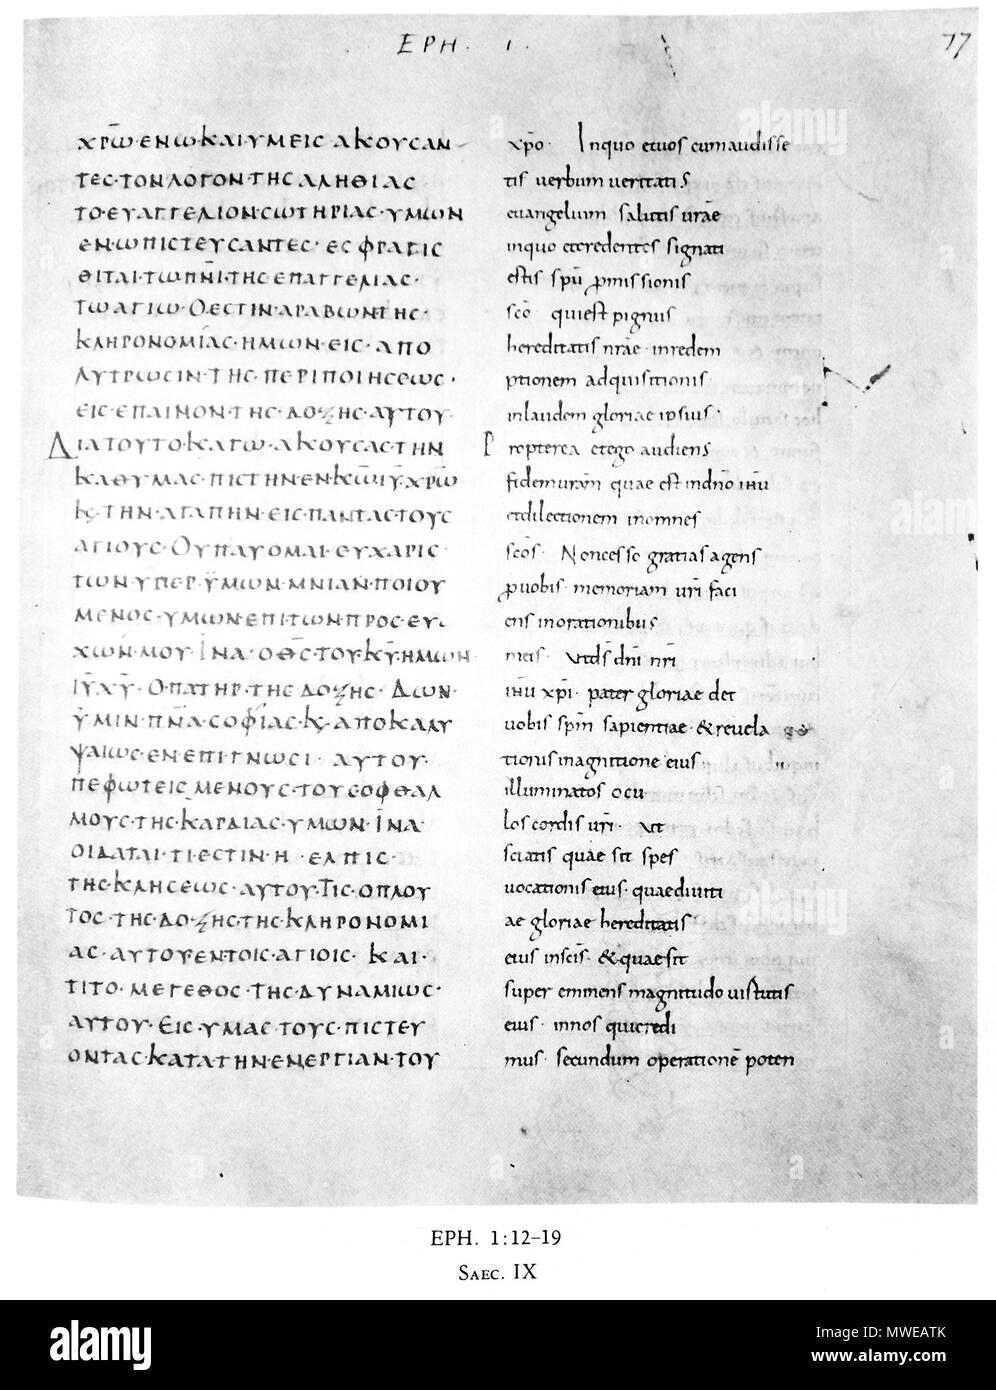 EPH. I.
77
χρ̅ω̅·ενω·και·υμεις ακουσαν
τες·τον λογον·της αληθιας
το·ευαγγελιον·σωτηριας·υμων
εν·ω πιστευσαντες· εσφραγισ
θιται·τω πν̅ι̅·της επαγγελιας·
τω αγιω·Ο εστιν·αραβων της·
κληρονομίας·ημων·εις·απο
λυτρωσιν·της·περιποιησεως·
εις·επαινον·της·δοξης·αυτου·
Δια τουτο·καγω·ακουσας·την
καθυμας·πιστην·εν·κ̅ω̅ ι̅υ̅·χρ̅ω̅
κς·την·αγαπην·εις·παντας·τους
αγιους·Ου παυομαι·ευχαρισ
των·υπερ·υμων·μνιαν·ποιου
μενος·υμων·επι των·προσευ
χων·μου·Ινα·ο θ̅ς̅·του·κ̅υ̅·ημων
ι̅υ̅ χ̅υ̅·Ο πατηρ·της·δοξης·Δων·
υμιν·πν̅α̅·σοφίας·κς·αποκαλυ
ψαιως·εν επιγνωσι·αυτου·
πεφωτεισμενους·τους οφθαλ
μους·της·καρδιας·υμων·ινα·
οιδαται·τι εστιν·η ελπις·
της·κλησεως·αυτου·Τις·ο πλου
τος·της·δοξης·της·κληρονομι
ας·αυτου·εν τοις·αγιοις·και·
τι το·μεγεθος·της·δυναμιως·
αυτου·Εις·υμας·τους·πιστευ
οντας·κατα την·ενεργιαν·του
xp̅o· Inquo etuos cumaudisse
tis uerbum ueritatis
euangelium salutis urae̅
inquo etcredentes signati
estis spu̅ promissionis
sc̅o quiest pignus
hereditatis nrae̅·inredem
ptionem adquisitionis·
inlaudem gloriae ipsius·
Propterea etego audiens
fidemuram̅ quae est indn̅o ihu̅
etdilectionem inomnes
sc̅os· Noncesso gratias agens
puobis·memoriam uri̅ faci
ens inorationibus
meis· Utds̅ dn̅i nr̅i
ihu̅ xp̅i·pater gloriae det
uobis spm̅ sapientiae·&reuela
tionis inagnitione eius
illuminatos ocu
los cordis ur̅i· Ut
sciatis quae sit spes
uocationis eius·quaediuiti
ae gloriae hereditatis
eius insc̅is·&quaesit
super eminens magnitudo uistutis
eius· innos quicredi
mus· secundum operatione̅ poten
EPH. 1:12–19
Saec. IX
alamy
Image ID: MWEATK
www.alamy.com